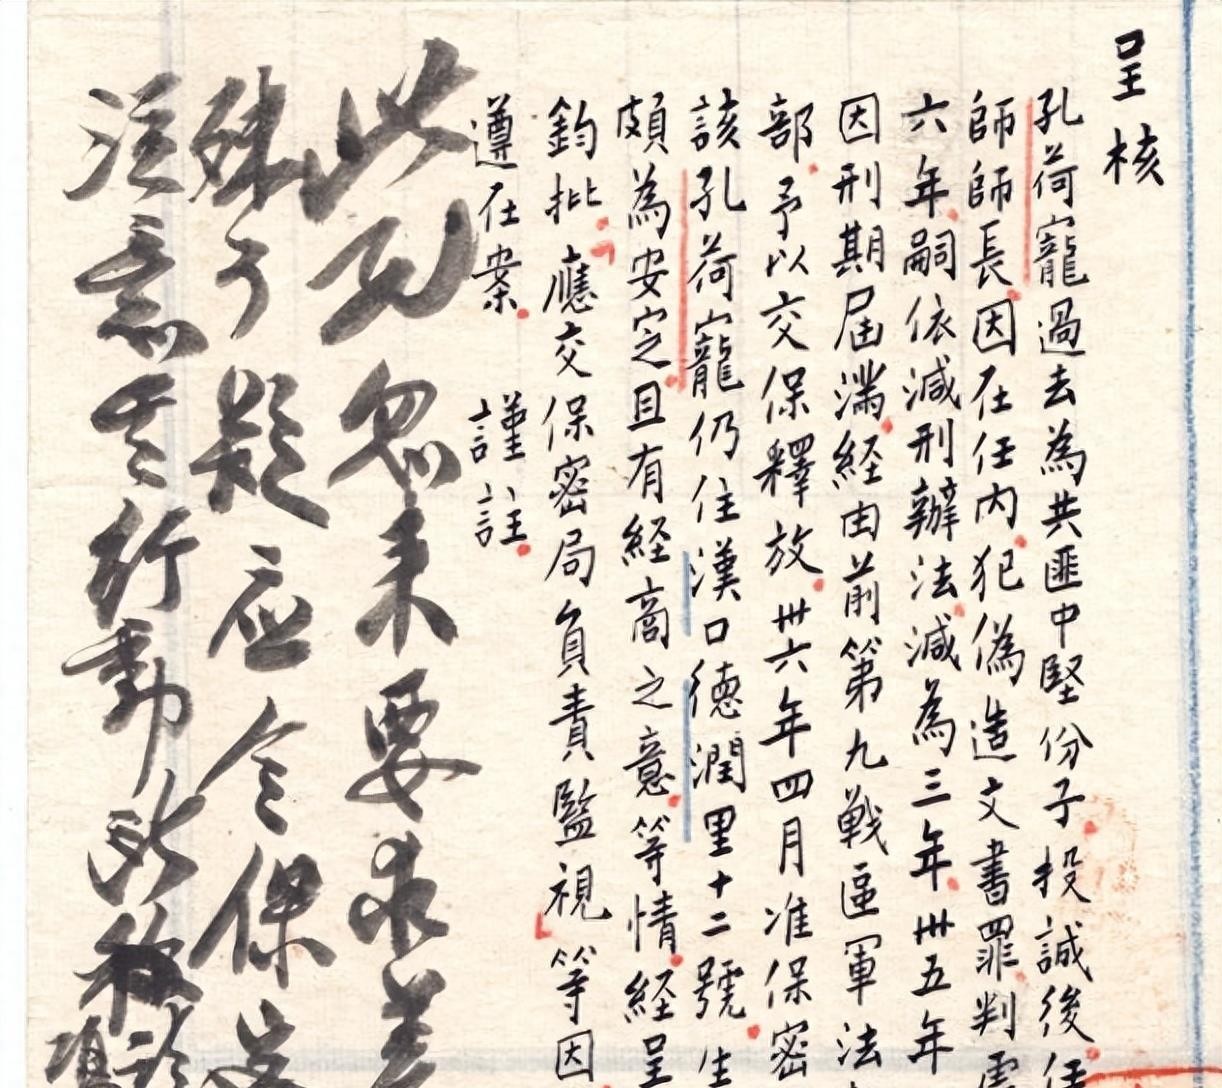 呈核
孔荷寵過去為共匪中堅份子。投誠後任
師師長。因在任內。犯偽造文書罪判
六年。嗣依減刑辦法。減為三年。卅五年
因刑期屆滿。経由前第九戰區軍法
部。予以交保釋放。卅六年四月准保密
該孔荷寵仍住漢口德潤里十二號。生
頗為安定。且有経商之意。等情。経呈
鈞批。「應交保密局負責監視」等因
遵在案。 謹註。
此死忽來要求差
殊可疑應令保
注意其行動